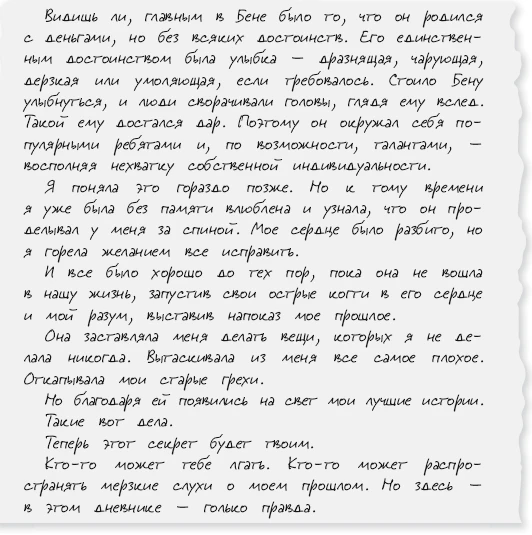 Видишь ли, главным в Бене было то, что он родился
с деньгами, но без всяких достоинств. Его единствен-
ным достоинством была улыбка — дразнящая, чарующая,
дерзкая или умоляющая, если требовалось. Стоило Бену
улыбнуться, и люди сворачивали головы, глядя ему вслед.
Такой ему достался дар. Поэтому он окружал себя по-
пулярными ребятами и, по возможности, талантами, —
восполняя нехватку собственной индивидуальности.
Я поняла это гораздо позже. Но к тому времени
я уже была без памяти влюблена и узнала, что он про-
делывал у меня за спиной. Мое сердце было разбито, но
я горела желанием все исправить.
И все было хорошо до тех пор, пока она не вошла
в нашу жизнь, запустив свои острые когти в его сердце
и мой разум, выставив напоказ мое прошлое.
Она заставляла меня делать вещи, которых я не де-
лала никогда. Вытаскивала из меня все самое плохое.
Откапывала мои старые грехи.
Но благодаря ей появились на свет мои лучшие истории.
Такие вот дела.
Теперь этот секрет будет твоим.
Кто-то может тебе лгать. Кто-то может распро-
странять мерзкие слухи о моем прошлом. Но здесь —
в этом дневнике — только правда.